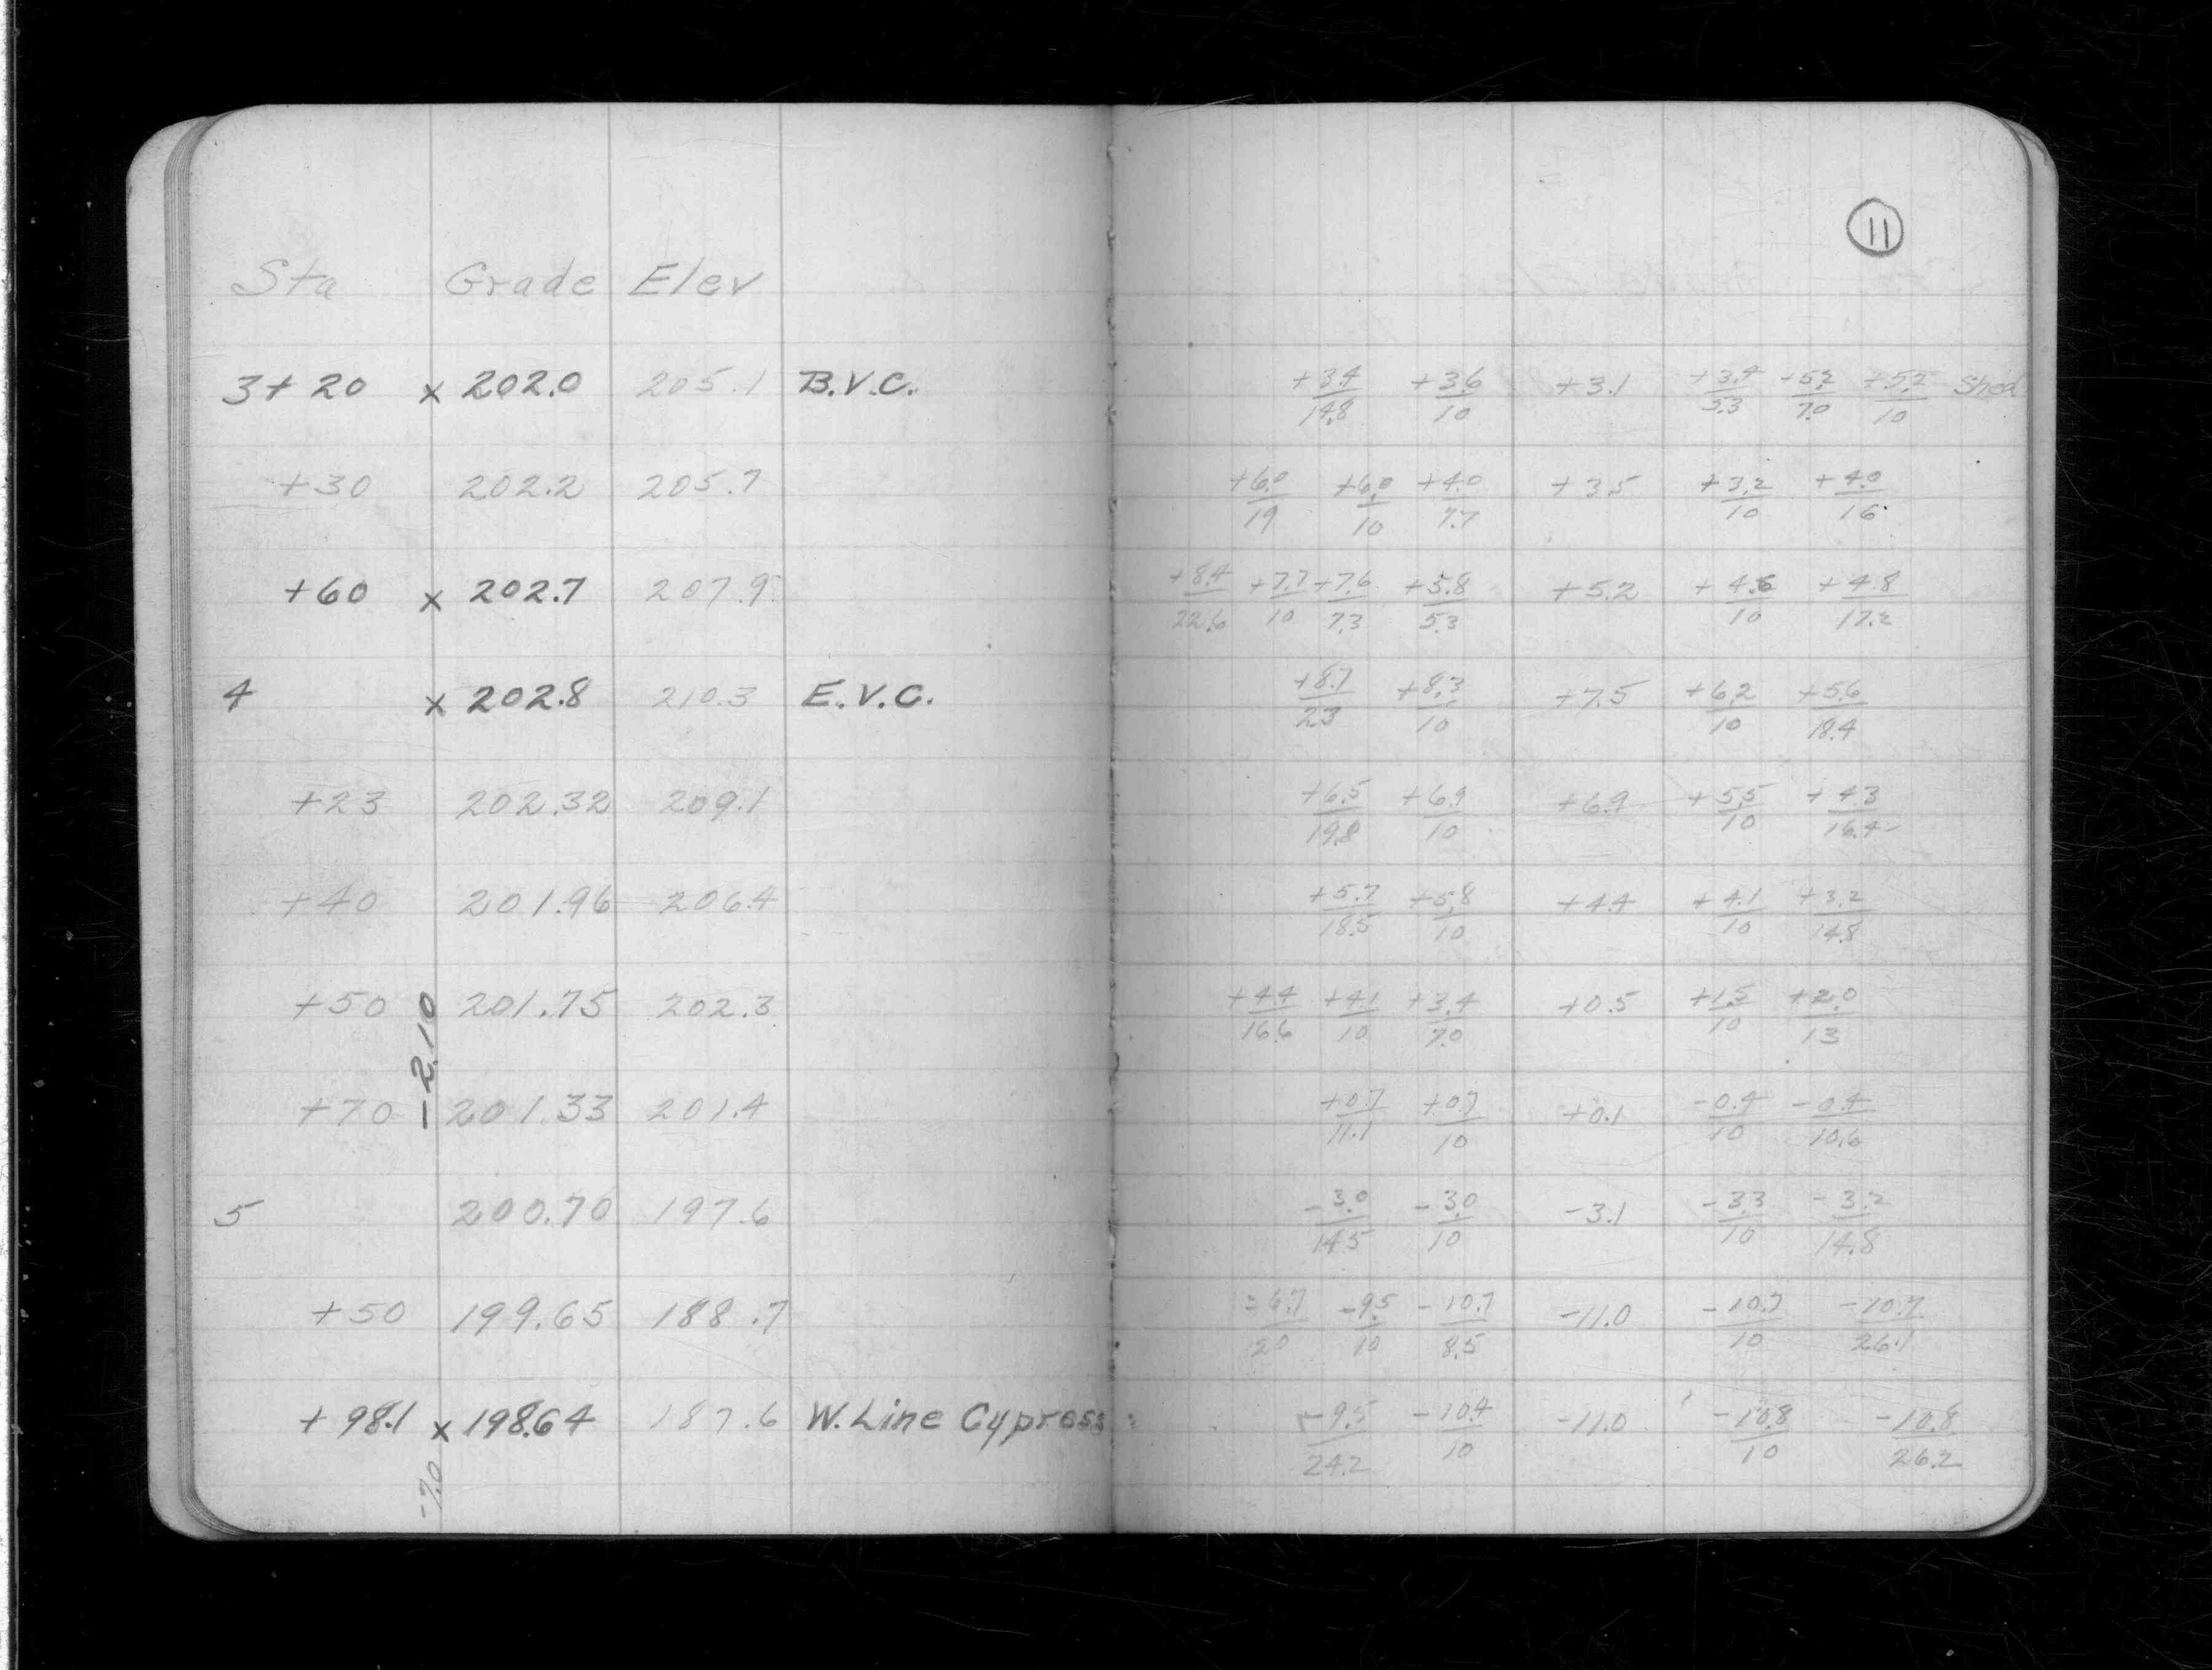 11
Sta Grade Elev
3+20 x 202.0 205.1 B.V.C. +3.4/14.8 +3.6/10 +3.1 +3.4/5.3 +5.2/7.0 +5.2/10 Shed
+30 202.2 205.7 +6.0/19 +6.0/10 +4.0/7.7 +3.5 +3.2/10 +4.0/16
+60 x 202.7 207.9 +8.4/22.6 +7.7/10 +7.6/7.3 +5.8/5.3 +5.2 +4.6/10 +4.8/17.2
4 x 202.8 210.3 E.V.C. +8.7/23 +8.3/10 +7.5 +6.2/10 +5.6/18.4
+23 202.32 209.1 +6.5/19.8 +6.9/10 +6.9 +5.5/10 +4.3/16.4
+40 201.96 206.4 +5.7/18.5 +5.8/10 +4.4 +4.1/10 +3.2/14.8
+50 201.75 202.3 +4.4/16.6 +4.1/10 +3.4/7.0 +0.5 +1.5/10 +2.0/13
-2.10
+70 201.33 201.4 +0.7/11.1 +0.7/10 +0.1 -0.4/10 -0.4/10.6
5 200.70 197.6 -3.0/14.5 -3.0/10 -3.1 -3.3/10 -3.2/14.8
+50 199.65 188.7 -6.7/20 -9.5/10 -10.7/8.5 -11.0 -10.7/10 -10.7/26.1
+98.1 x 198.64 187.6 W. Line Cypress -9.5/24.2 -10.4/10 -11.0 -10.8/10 -10.8/26.2
-7.0